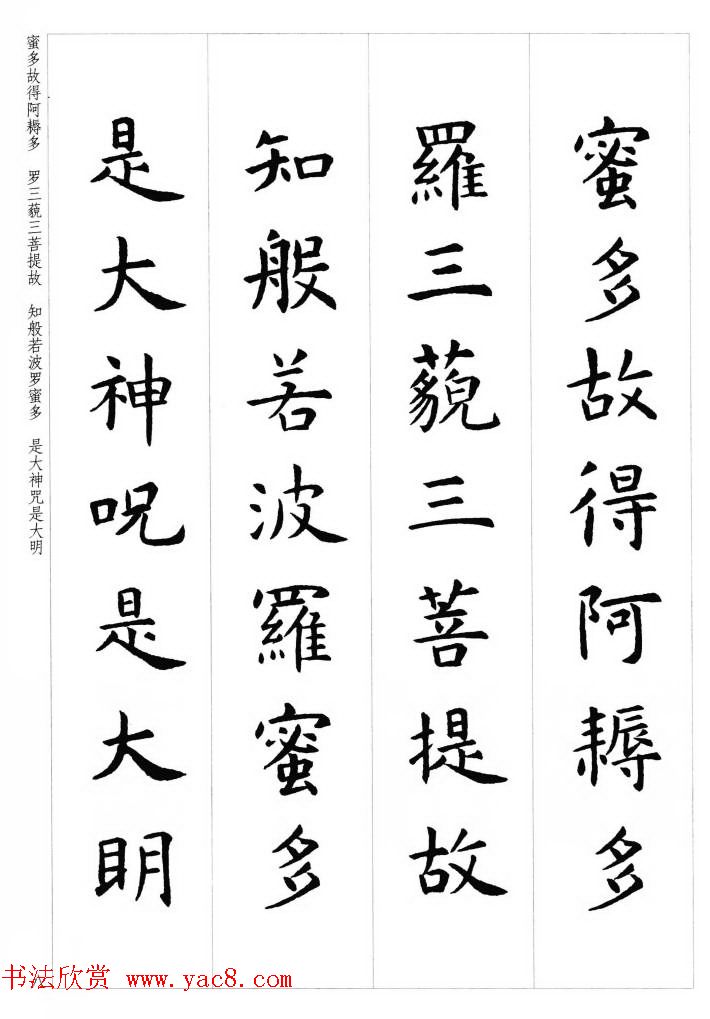 蜜多故得阿耨多
羅三藐三菩提故
知般若波羅蜜多
是大神呪是大明
蜜多故得阿耨多 罗三藐三菩提故 知般若波罗蜜多 是大神咒是大明
书法欣赏 www.yac8.com